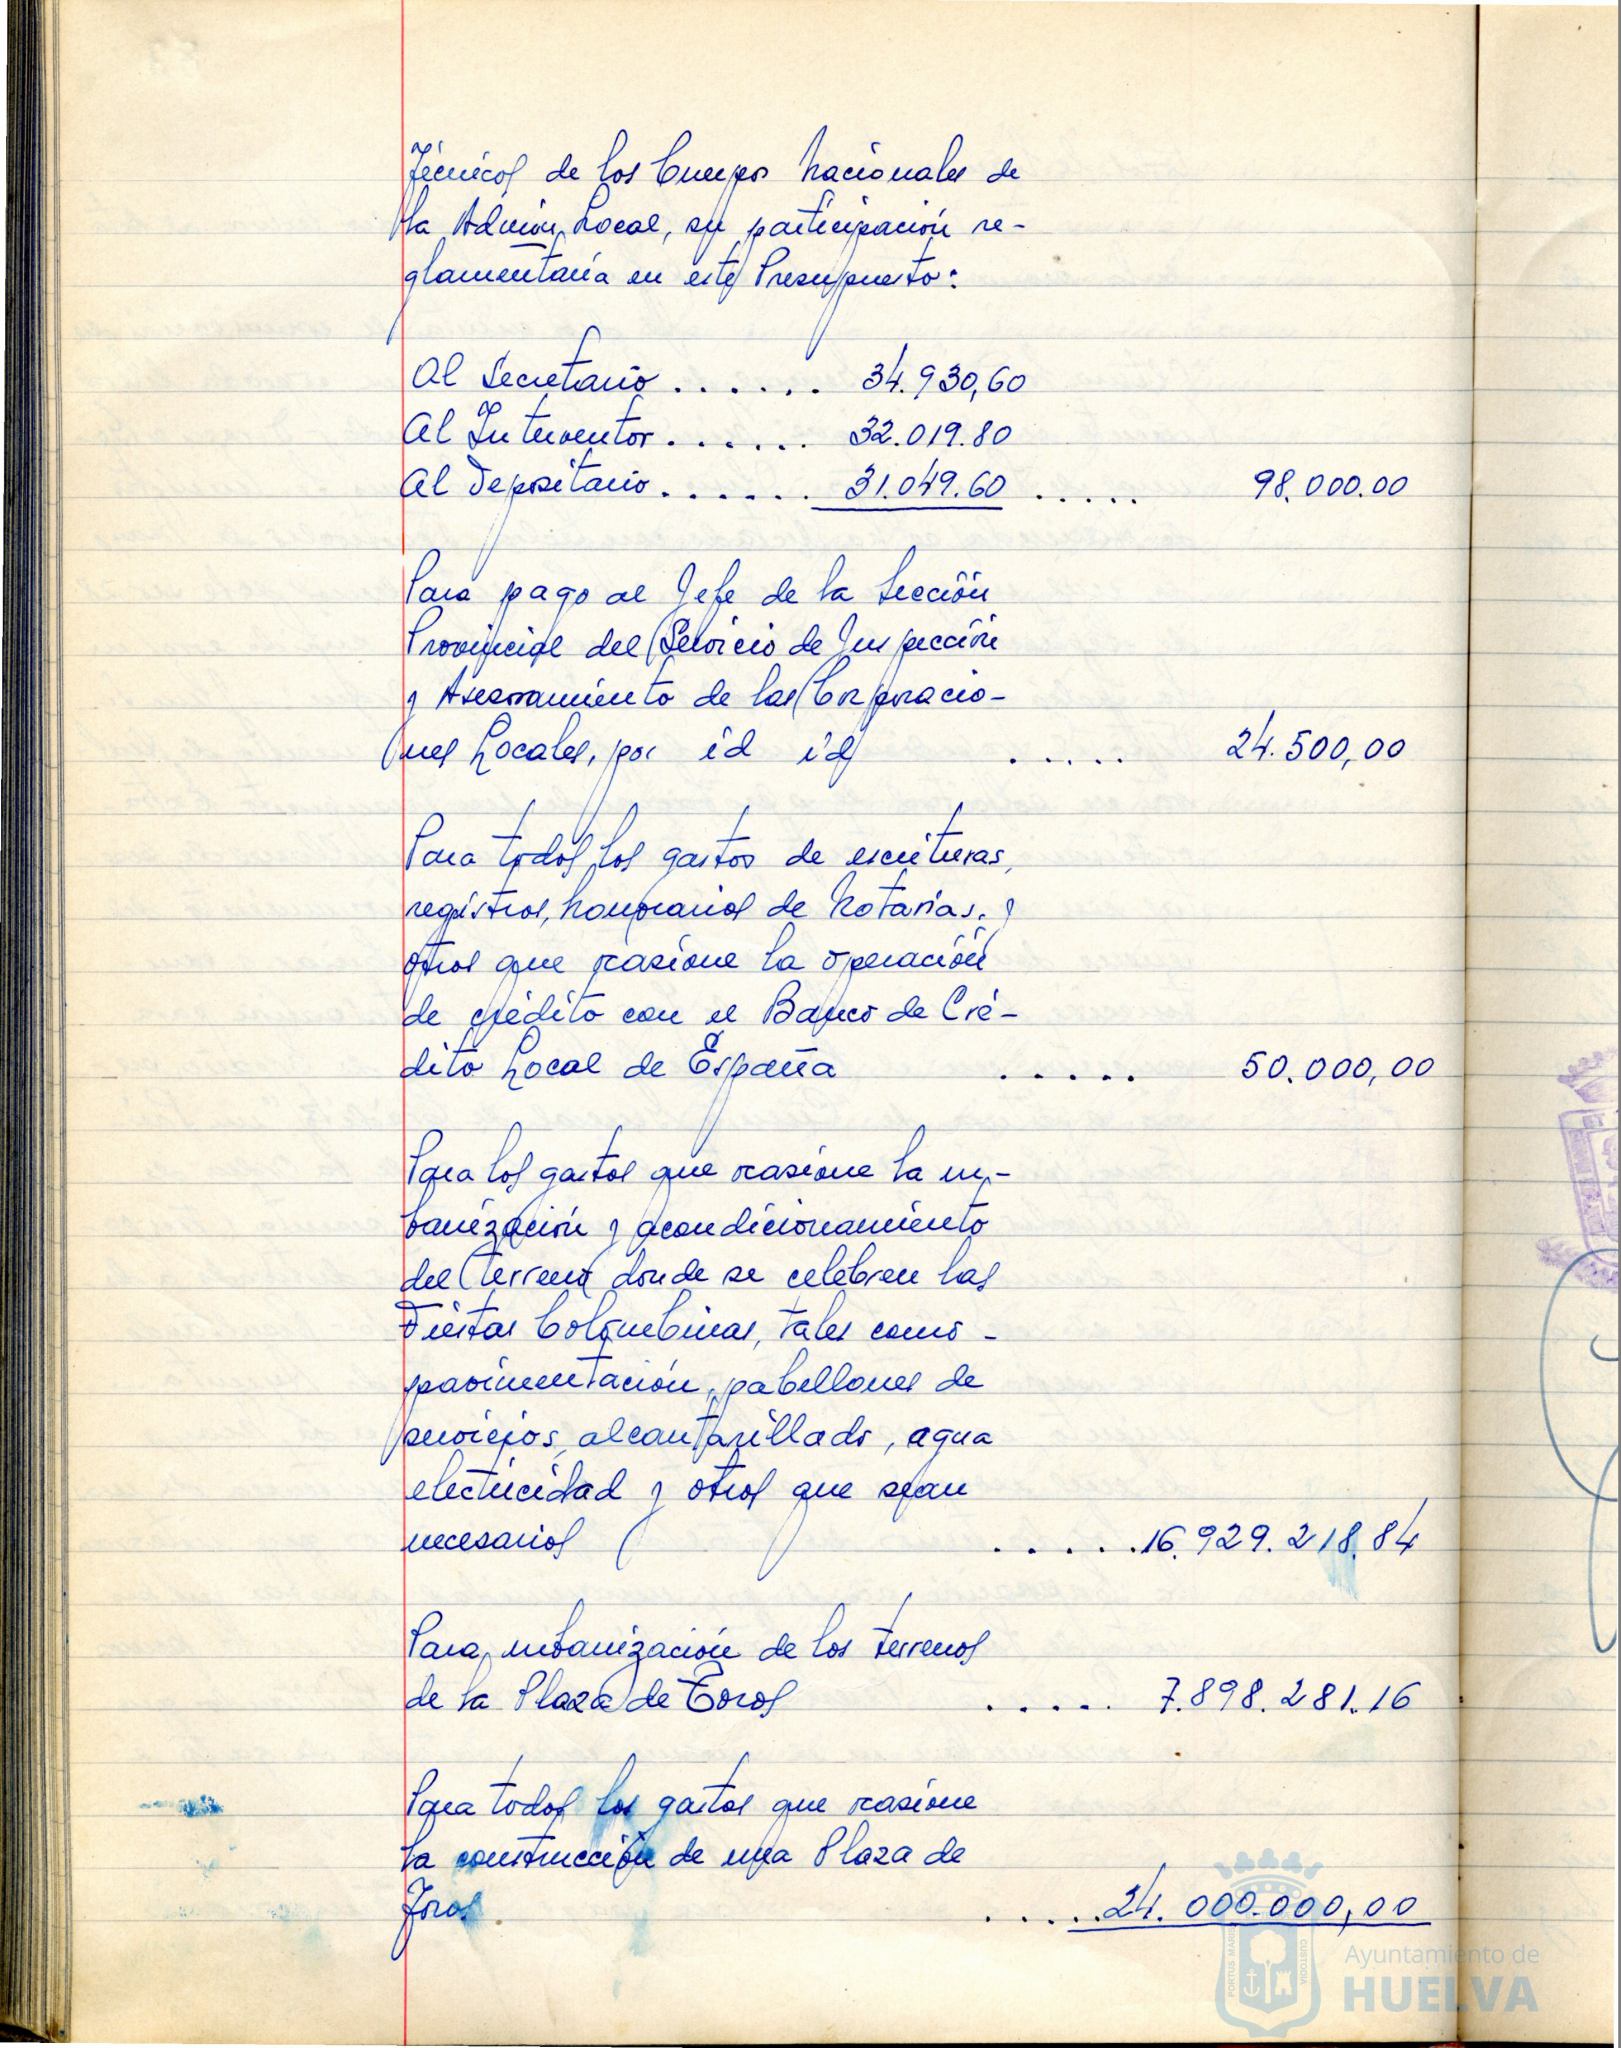 Técnicos de los Cuerpos Nacionales de
la Admón Local, su participación re-
glamentaria en este Presupuesto:
Al Secretario . . . . . . 34.930,60
Al Interventor . . . . . . 32.019.80
Al Depositario . . . . . . 31.049.60 . . . . . 98.000.00
Para pago al Jefe de la Sección
Provincial del Servicio de Inspección
y Asesoramiento de las Corporacio-
nes Locales, por id id . . . . . 24.500,00
Para todos los gastos de escrituras,
registros, honorarios de Notarias, y
otros que ocasione la operación
de crédito con el Banco de Cré-
dito Local de España . . . . . 50.000,00
Para los gastos que ocasione la ur-
banización y acondicionamiento
del terreno donde se celebren las
Fiestas Colombinas, tales como -
pavimentación, pabellones de
servicios, alcantarillado, agua
electricidad y otros que sean
necesarios . . . . . 16.929.218.84
Para urbanización de los terrenos
de la Plaza de Toros . . . . . 7.898.281.16
Para todos los gastos que ocasione
la construcción de una Plaza de
Toros . . . . . 24.000.000,00
PORTUS MARIS CUSTODIA
Ayuntamiento de
HUELVA